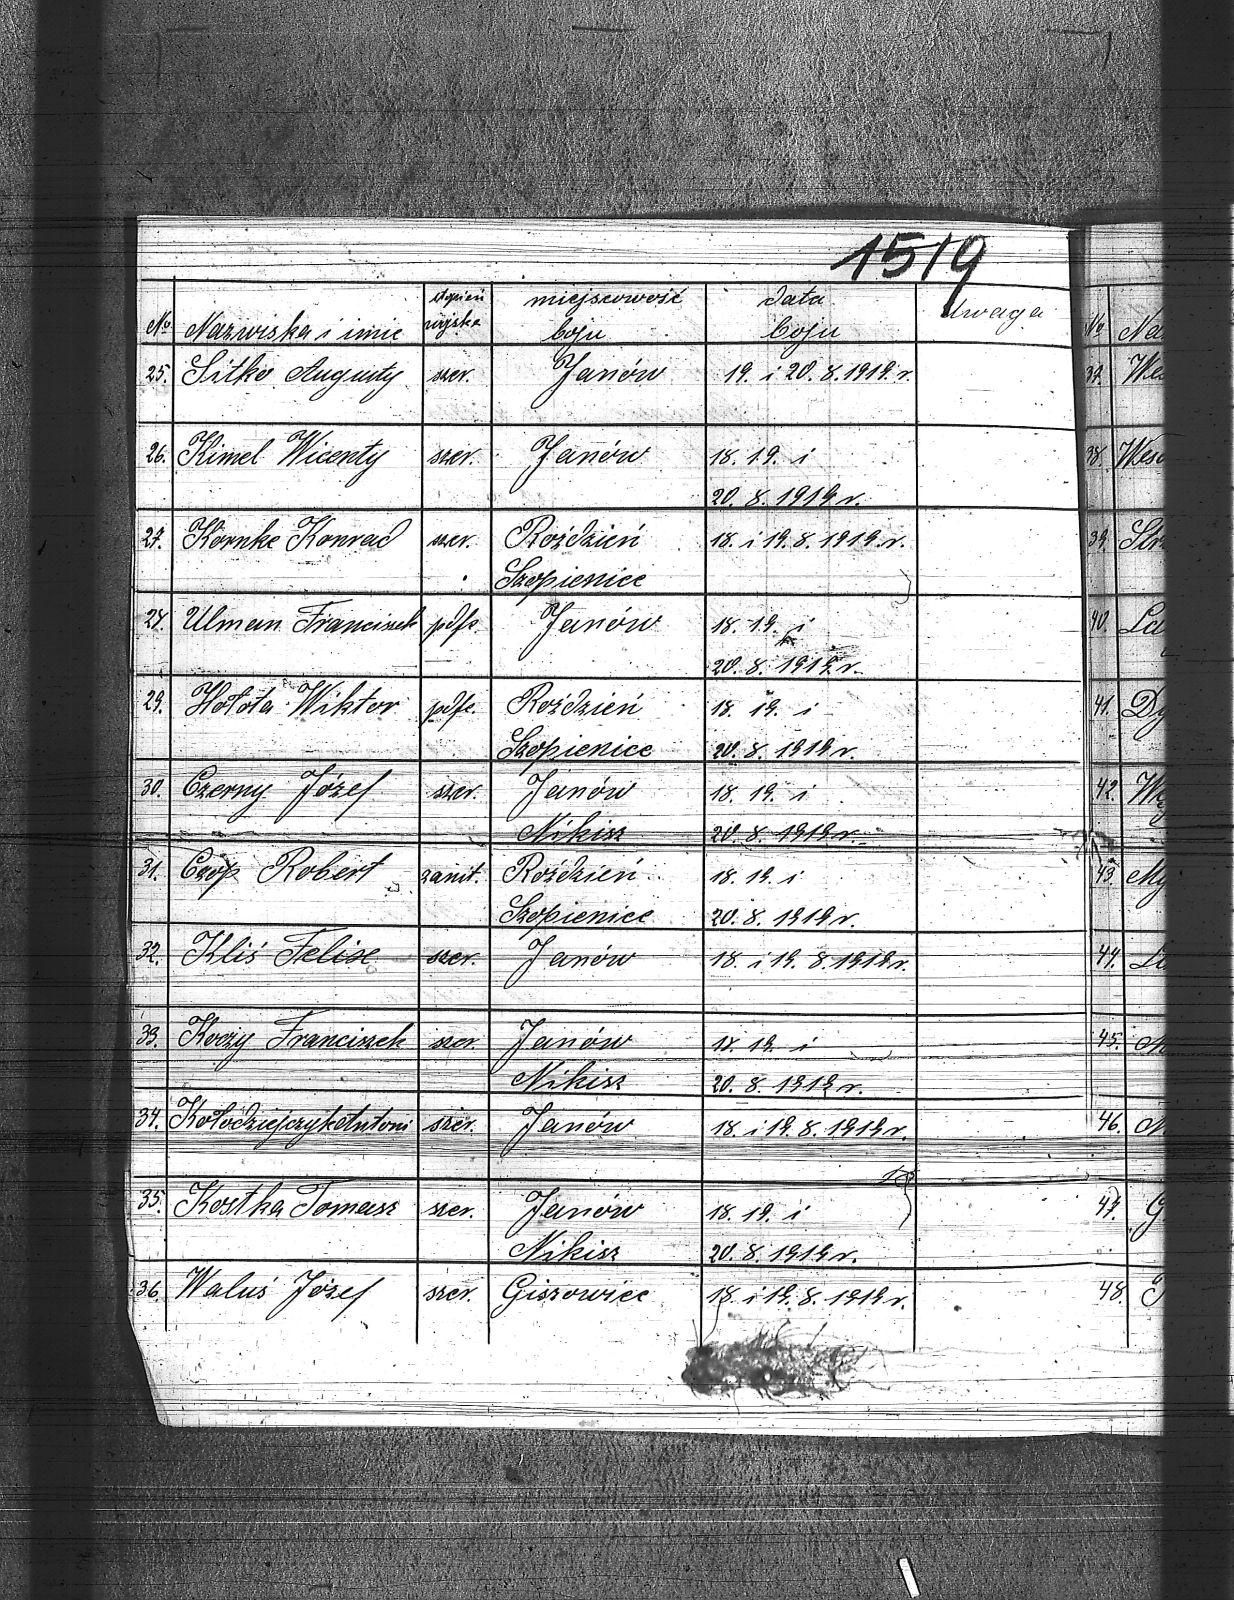 1519
No Nazwiska i imię stopień wojsk. miejscowość boju data boju Uwaga
25. Sitko Augusty szer. Janów 19. i 20.8.1919.r.
26. Kimel Wicenty szer. Janów 18. 19. i
20.8.1919r.
27. Körnke Konrad szer. Roździeń 18. i 19.8.1919.r.
Szopienice
28. Ulman Franciszek pdfc. Janów 18. 19. i
20.8.1919r.
29. Hołota Wiktor pdfc. Roździeń 18. 19. i
Szopienice 20.8.1919r.
30. Czerny Józef szer. Janów 18. 19. i
Nikisz 20.8.1919r.
31. Czop Robert sanit. Roździeń 18. 19. i
Szopienice 20.8.1919r.
32. Kliś Felix szer. Janów 18. i 19.8.1919r.
33. Koczy Franciszek szer. Janów 18. 19. i
Nikisz 20.8.1919r.
34. Kołodziejczyk Antoni szer. Janów 18. i 19.8.1919r.
35. Kostka Tomasz szer. Janów 18. 19. i
Nikisz 20.8.1919r.
36. Waluś Józef szer. Giszowiec 18. i 19.8.1919r.
No
37.
38.
39.
40.
41.
42.
43.
44.
45.
46.
47.
48.